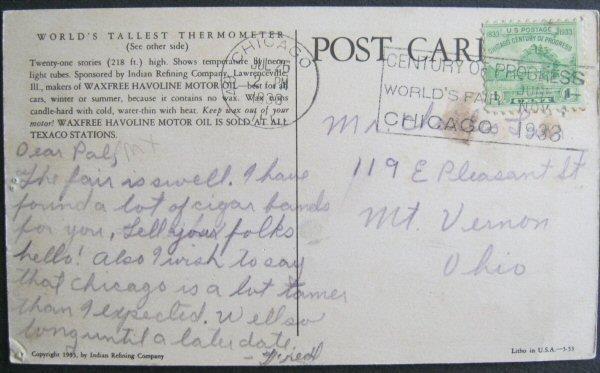 WORLD'S TALLEST THERMOMETER
(See other side)
Twenty-one stories (218 ft.) high. Shows temperature by neon
light tubes. Sponsored by Indian Refining Company, Lawrenceville,
Ill., makers of WAXFREE HAVOLINE MOTOR OIL—best for all
cars, winter or summer, because it contains no wax. Wax turns
candle-hard with cold, water-thin with heat. Keep wax out of your
motor! WAXFREE HAVOLINE MOTOR OIL IS SOLD AT ALL
TEXACO STATIONS.
Dear Pal,
The fair is swell. I have
found a lot of cigar bands
for you, Tell your folks
hello! Also I wish to say
that Chicago is a lot tamer
than I expected. Well so
long until a later date.
Copyright 1933, by Indian Refining Company
POST CARD
CHICAGO
JUL 26
PM
1933
CENTURY OF PROGRESS
WORLD'S FAIR
JUNE
NOV
CHICAGO 1933
1833 1933
U.S. POSTAGE
CHICAGO CENTURY OF PROGRESS
1¢
Mr.
119 E Pleasant St
Mt. Vernon
Ohio
Litho in U.S.A.—5-33